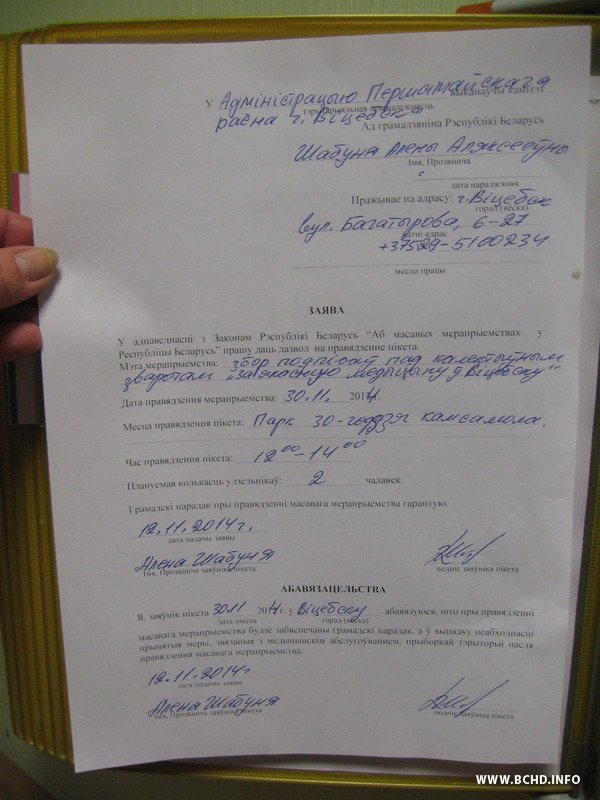 У Адміністрацыю Першамайскага выканаўчы камітэт
тэрытарыяльная прыналежнасць
раёна г. Віцебска
Ад грамадзяніна Рэспублікі Беларусь
Шабуня Алены Аляксееўны
Імя, Прозвішча
дата нараджэння
Пражывае па адрасу: г. Віцебск
горад (вёска)
вул. Багатырова, 6-27
хатні адрас
+37529-5100234
месца працы
ЗАЯВА
У адпаведнасці з Законам Рэспублікі Беларусь "Аб масавых мерапрыемствах у
Рэспубліцы Беларусь" прашу даць дазвол на правядзенне пікета.
Мэта мерапрыемства: збор подпісаў пад калектыўным
зваротам „За якасную медыцыну ў Віцебску"
Дата правядзення мерапрыемства: 30.11. 2014.
Месца правядзення пікета: Парк 30-годдзя камсамола.
Час правядзення пікета: 12 00 – 14 00
Плануемая колькасць удзельнікаў: 2 чалавек.
Грамадскі парадак пры правядзенні масавага мерапрыемства гарантую.
12.11.2014 г.
дата падачы заявы
Алена Шабуня
Імя, Прозвішча заяўніка пікета подпіс заяўніка пікета
АБАВЯЗАЦЕЛЬСТВА
Я, заяўнік пікета 30.11 2014 г. у Віцебску абавязуюся, што пры правядзенні
дата пікета горад (вёска)
масавага мерапрыемства будзе забяспечаны грамадскі парадак, а ў выпадку неабходнасці
прынятыя меры, звязаныя з медыцынскім абслугоўваннем, прыборкай тэрыторыі пасля
правядзення масавага мерапрыемства.
12.11.2014 г.
дата падачы заявы
Алена Шабуня
Імя, Прозвішча заяўніка пікета подпіс заяўніка пікета
WWW.BCHD.INFO